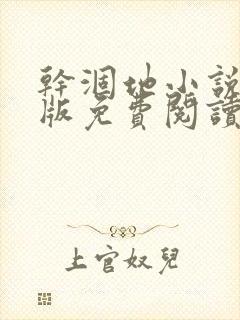 幹涸地小說
版免費閱讀
上官奴兒